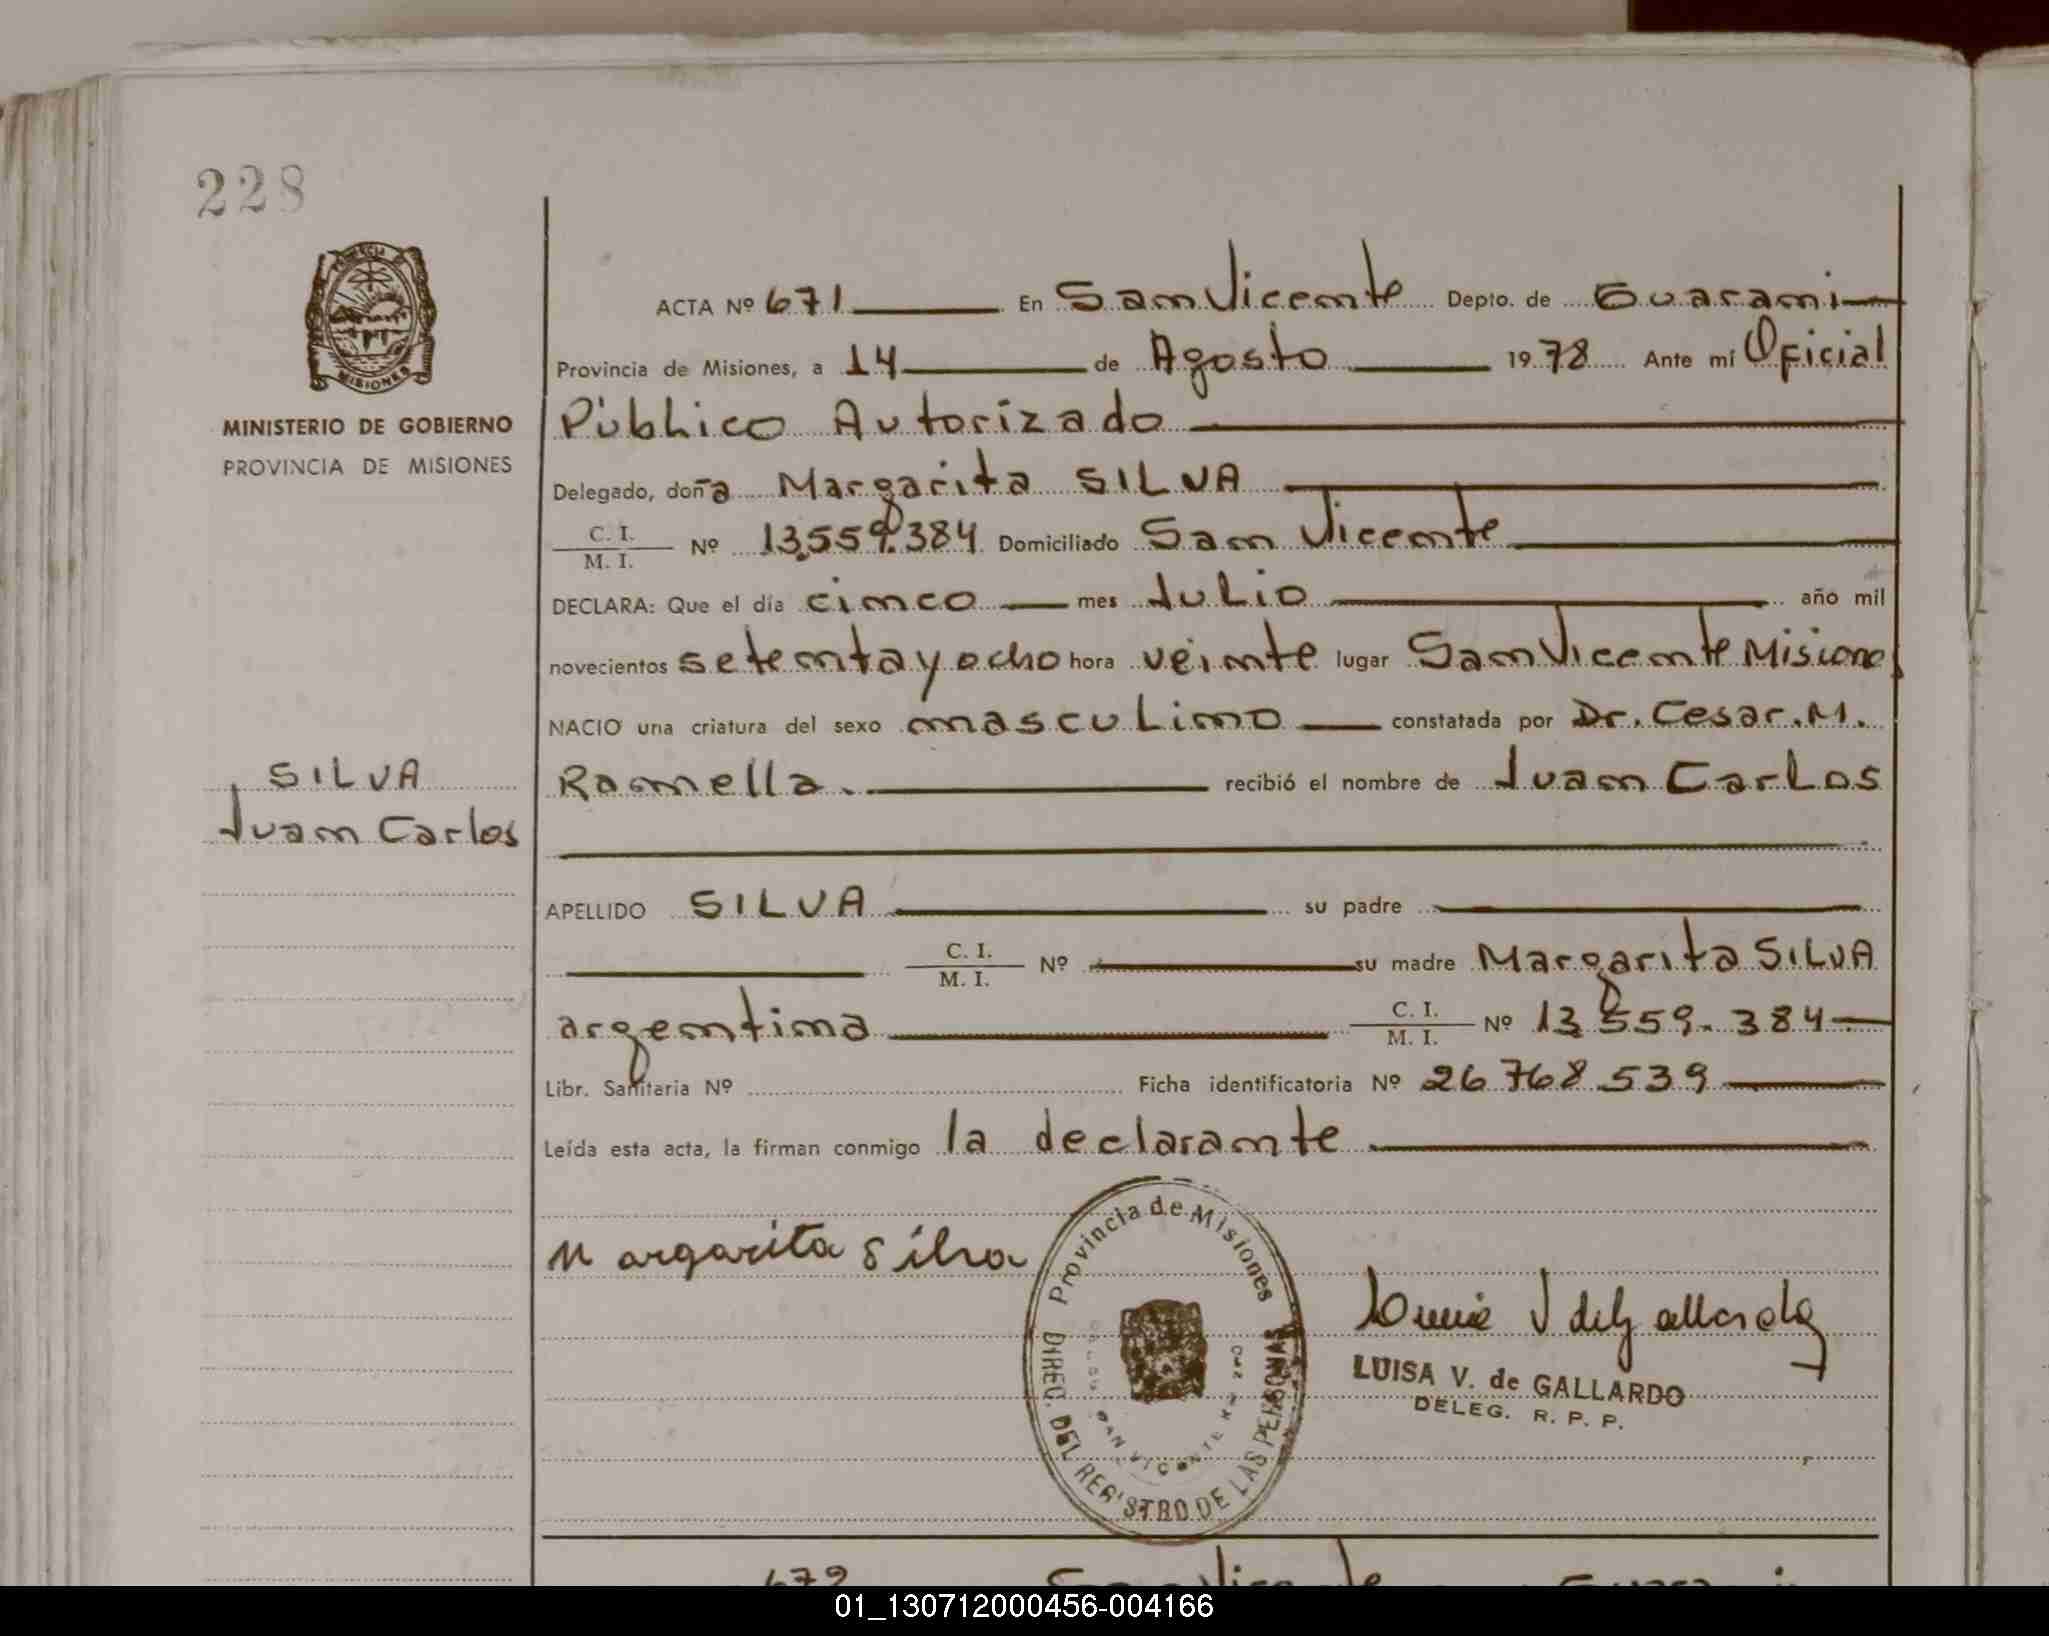 228
PROVINCIA DE
MISIONES
MINISTERIO DE GOBIERNO
PROVINCIA DE MISIONES
SILVA
Juan Carlos
ACTA Nº 671 En San Vicente Depto. de Guarani
Provincia de Misiones, a 14 de Agosto 1978 Ante mí Oficial
Público Autorizado
Delegado, doña Margarita SILVA
C. I.
M. I. Nº 13.559.384 Domiciliado San Vicente
DECLARA: Que el día cinco mes Julio año mil
novecientos setenta y ocho hora veinte lugar San Vicente Misiones
NACIO una criatura del sexo masculino constatada por Dr. Cesar. M.
Ramella. recibió el nombre de Juan Carlos
APELLIDO SILVA su padre
C. I.
M. I. Nº su madre Margarita SILVA
argentina C. I.
M. I. Nº 13.559.384
Libr. Sanitaria Nº Ficha identificatoria Nº 26.768.539
Leída esta acta, la firman conmigo la declarante
Margarita Silva
Provincia de Misiones
DIREC. DEL REGISTRO DE LAS PERSONAS
SAN VICENTE
Luisa V de Gallardo
LUISA V. de GALLARDO
DELEG. R. P. P.
672 San Vicente Guarani
01_130712000456-004166